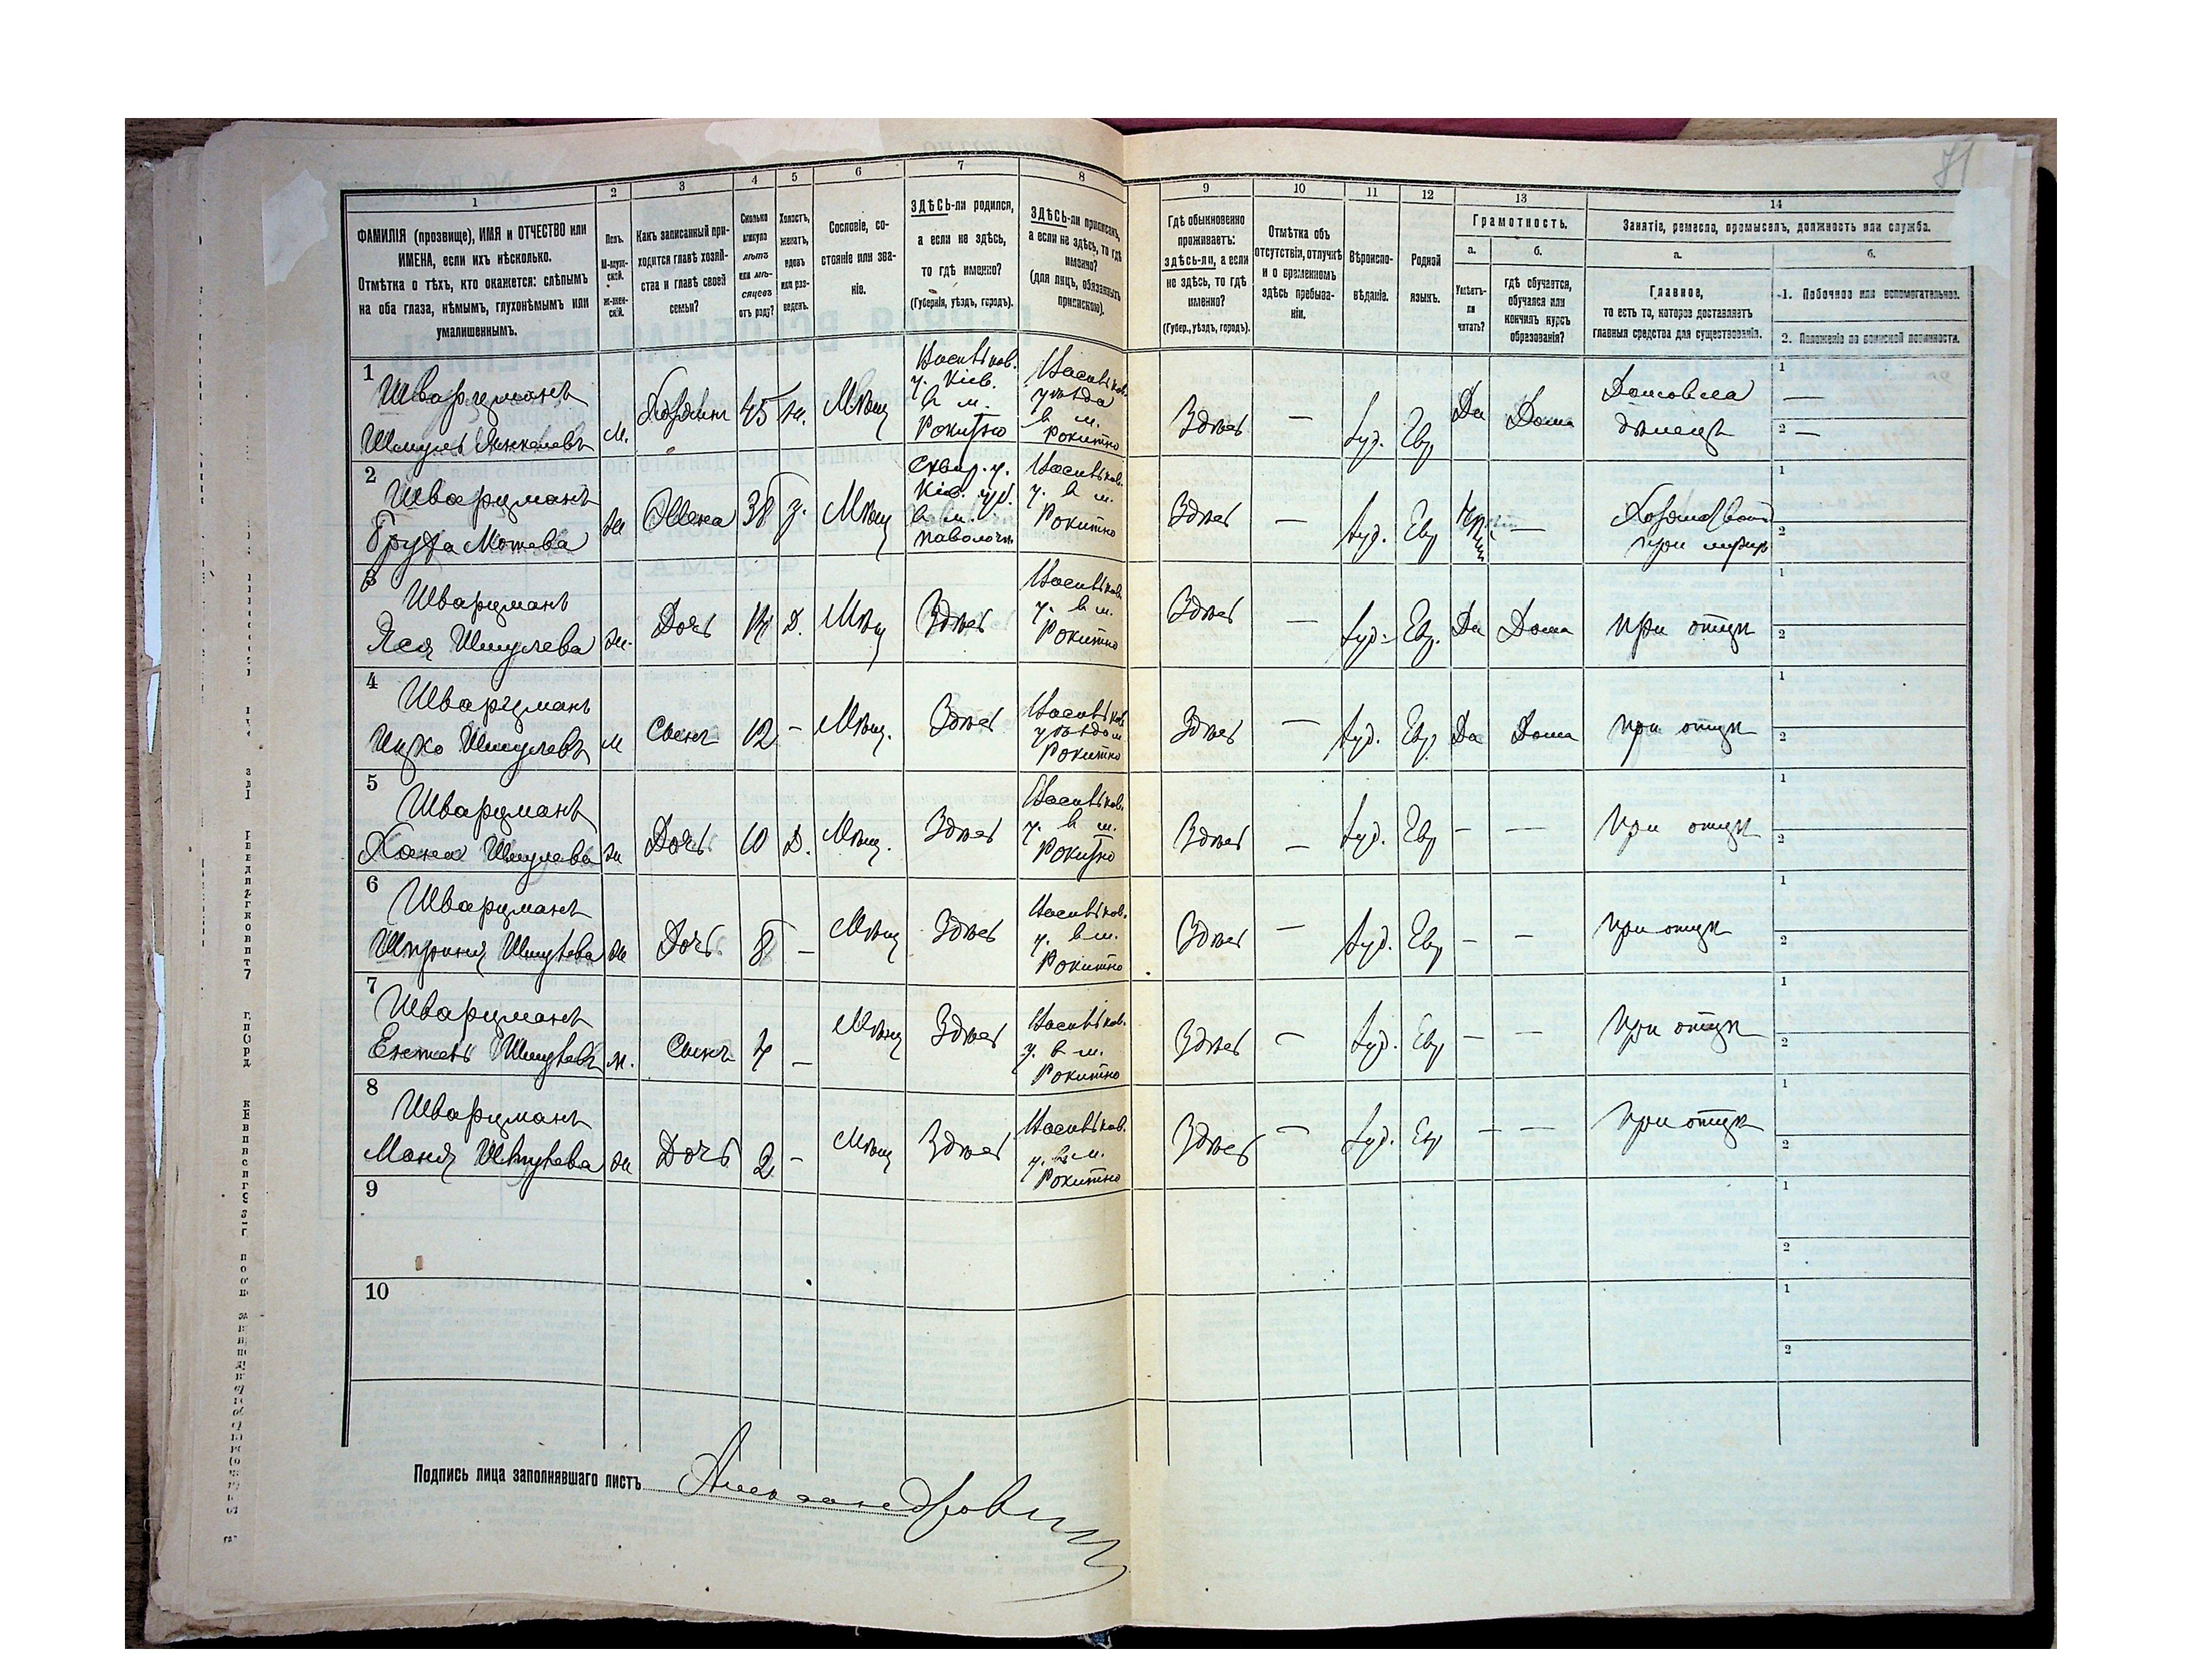 71
1 2 3 4 5 6 7 8 9 10 11 12 13 14
ФАМИЛІЯ (прозвище), ИМЯ и ОТЧЕСТВО или
ИМЕНА, если ихъ нѣсколько.
Отмѣтка о тѣхъ, кто окажется: слѣпымъ
на оба глаза, нѣмымъ, глухонѣмымъ или
умалишеннымъ.
Полъ.
М-муж-
ской.
Ж-жен-
скій.
Какъ записанный при-
ходится главѣ хозяй-
ства и главѣ своей
семьи?
Сколько
минуло
лѣтъ
или мѣ-
сяцевъ
отъ роду?
Холостъ,
женатъ,
вдовъ
или раз-
веденъ.
Сословіе, со-
стояніе или зва-
ніе.
ЗДѢСЬ-ли родился,
а если не здѣсь,
то гдѣ именно?
(Губернія, уѣздъ, городъ).
ЗДѢСЬ-ли приписанъ,
а если не здѣсь, то гдѣ
именно?
(для лицъ, обязанныхъ
припискою).
Гдѣ обыкновенно
проживаетъ:
здѣсь-ли, а если
не здѣсь, то гдѣ
именно?
(Губер., уѣздъ, городъ).
Отмѣтка объ
отсутствіи, отлучкѣ
и о временномъ
здѣсь пребыва-
ніи.
Вѣроиспо-
вѣданіе.
Родной
языкъ.
Грамотность.
а.
Умѣетъ-
ли
читать?
б.
гдѣ обучается,
обучался или
кончилъ курсъ
образованія?
Занятіе, ремесло, промыселъ, должность или служба.
а.
Главное,
то есть то, которое доставляетъ
главныя средства для существованія.
б.
1. Побочное или вспомогательное.
2. Положеніе по воинской повинности.
1
Шварцманъ
Шмуль Янкелевъ
м.
Хозяинъ
45
ж.
Мѣщ
Васильков.
у. Кіев.
в м.
Рокитно
Васильков.
уѣзда
в м.
Рокитно
Здѣсь
—
Іуд.
Евр
Да
Дома
Домовла
дѣлецъ
1 —
2 —
2
Шварцманъ
Мошева
ж
Жена
38
з.
Мѣщ
Сквир. у.
Кіев. губ.
в м.
Паволочи
Васильков.
у. в м.
Рокитно
Здѣсь
—
Іуд.
Евр
—
при мужѣ
1
2
3
Шварцманъ
Шмулева
ж.
Дочь
14
Д.
Мѣщ
Здѣсь
Васильков.
у. в м.
Рокитно
Здѣсь
—
Іуд.
Евр.
Да
Дома
при отцѣ
1
2
4
Шварцманъ
Ицко Шмулевъ
м
Сынъ
12
—
Мѣщ.
Здѣсь
Васильков
уѣзда м
Рокитно
Здѣсь
—
Іуд.
Евр
Да
Дома
при отцѣ
1
2
5
Шварцманъ
Хана Шмулева
ж
Дочь
10
Д.
Мѣщ.
Здѣсь
Васильков.
у. в м.
Рокитно
Здѣсь
—
Іуд.
Евр
—
—
при отцѣ
1
2
6
Шварцманъ
Шмулева
ж
Дочь
8
—
Мѣщ
Здѣсь
Васильков.
у. в м.
Рокитно
Здѣсь
—
Іуд.
Евр
—
—
при отцѣ
1
2
7
Шварцманъ
Шмулевъ
м.
Сынъ
4
—
Мѣщ
Здѣсь
Васильков.
у. в м.
Рокитно
Здѣсь
—
Іуд.
Евр
—
—
при отцѣ
1
2
8
Шварцманъ
Маня Шмулева
ж
Дочь
2
—
Мѣщ
Здѣсь
Васильков.
у. в м.
Рокитно
Здѣсь
—
Іуд.
Евр
—
—
при отцѣ
1
2
9
1
2
10
1
2
Подпись лица заполнявшаго листъ